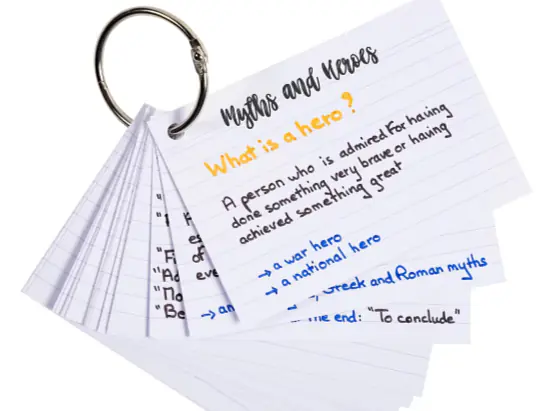 Myths and Heroes
What is a hero?
A person who is admired for having
done something very brave or having
achieved something great
→ a war hero
→ a national hero
Greek and Roman myths
end: "To conclude"
of
→ an
"Be